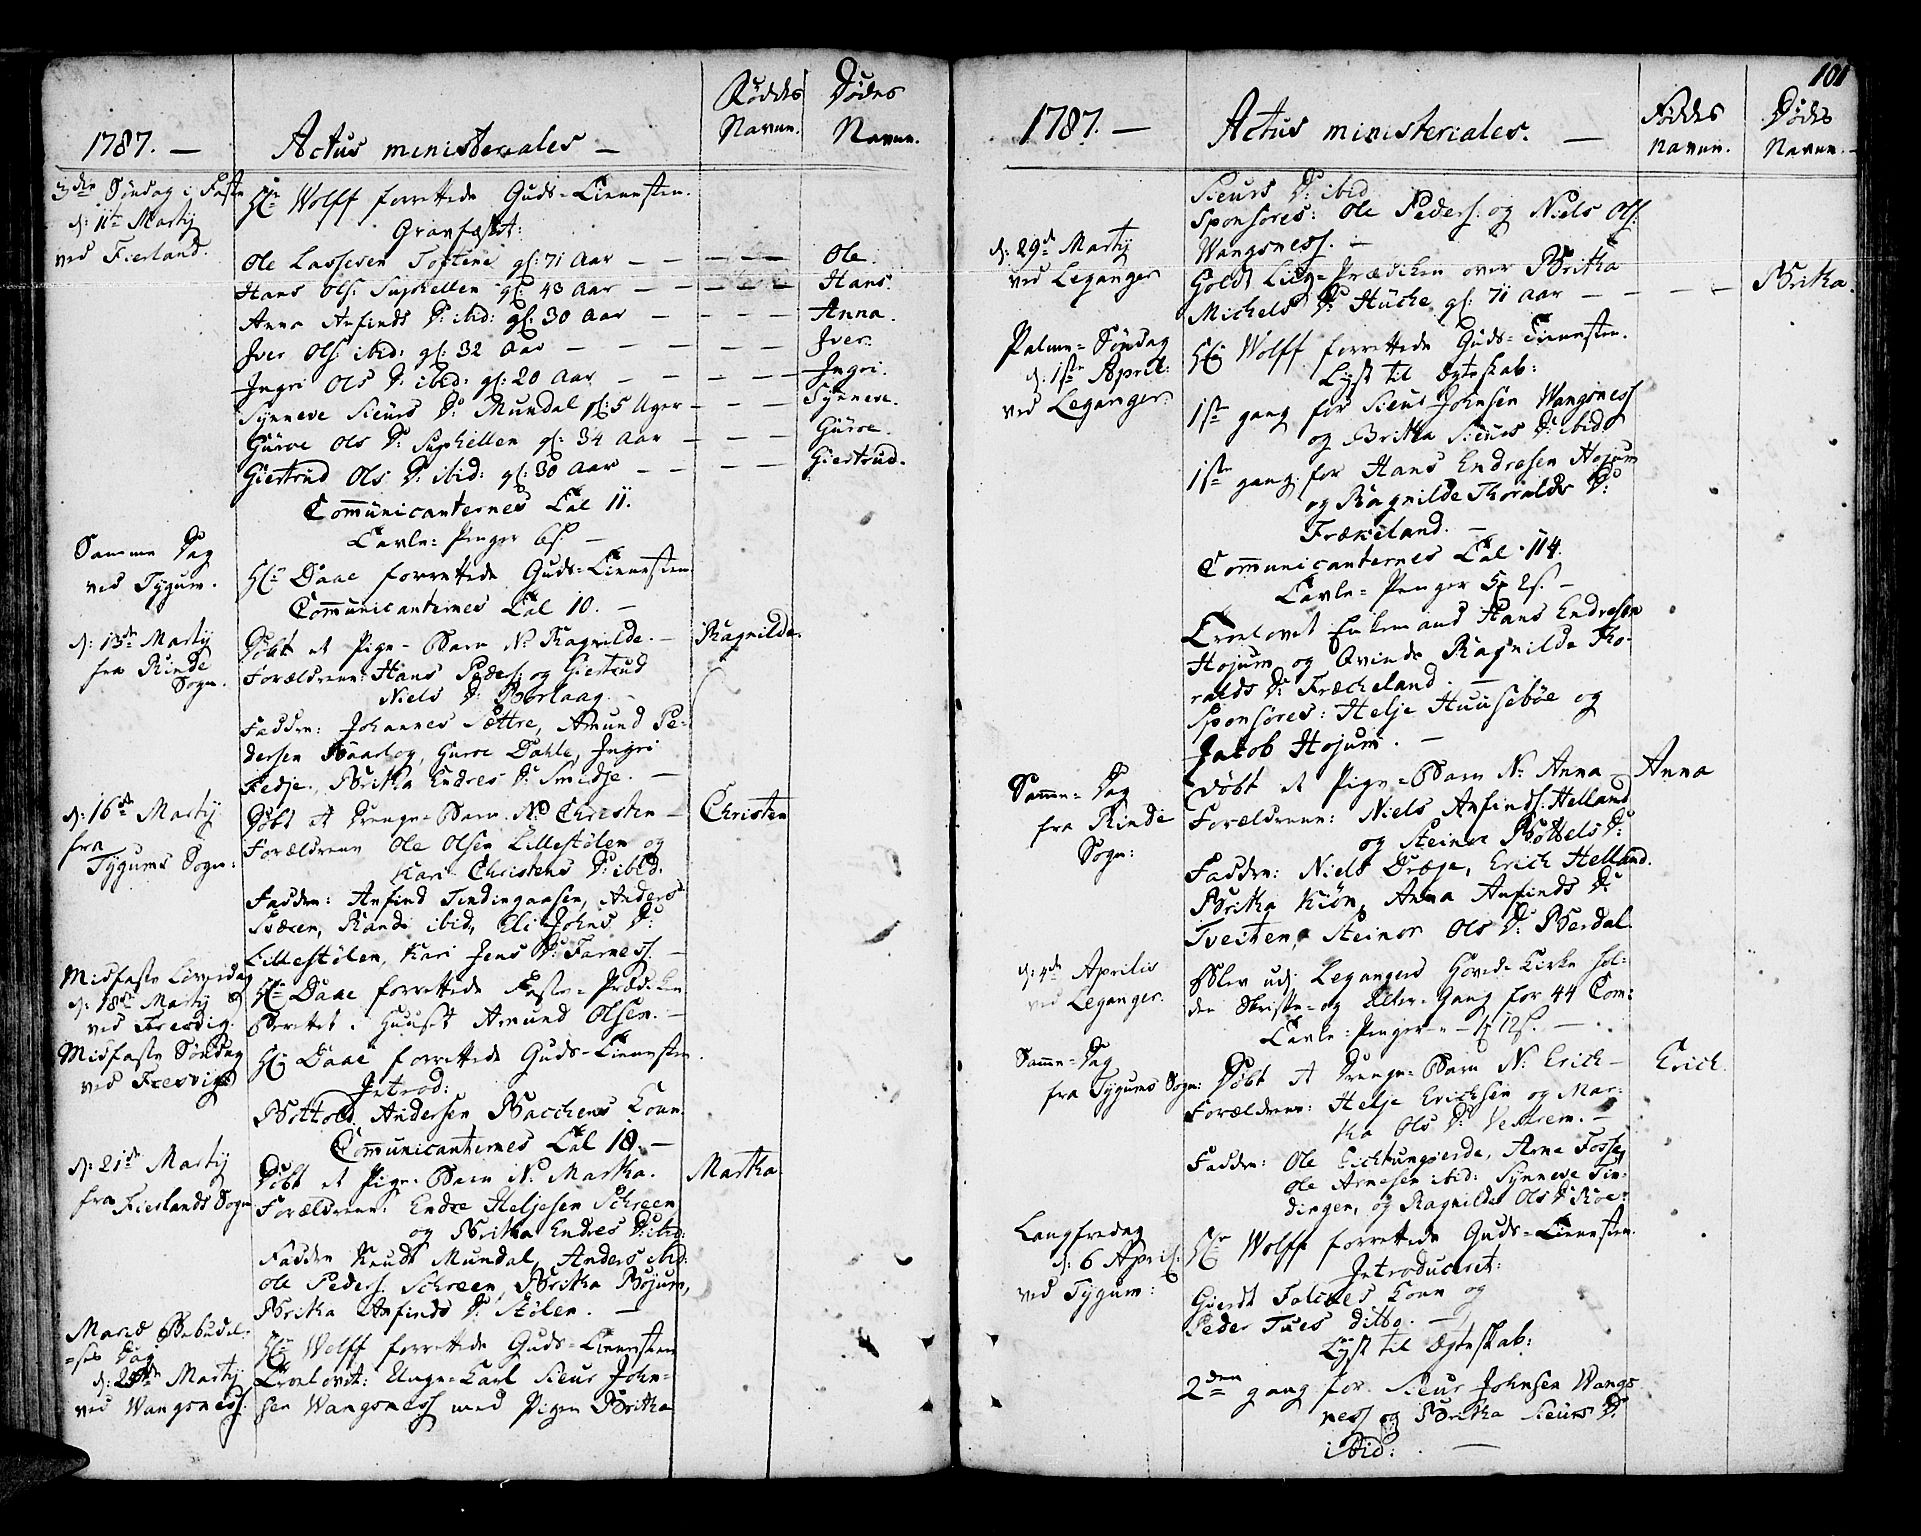 1787. — Actus ministeriales — Føddes Navne. Dødes Navne.
3die Søndag i Faste
d: 11te Martij
ved Fierland.
Hr Wolff forrettede Guds-Tienesten.
Gravfæstet:
Ole Lassesen Tostene gl: 71 Aar — — — — Ole.
Hans Ols: Suphellen gl: 43 Aar — — — — Hans.
Anna Anfinds D: ibid: gl: 30 Aar — — — — Anna.
Jver Ols: ibid: gl: 32 Aar — — — — Jver.
Jngri Ols D: ibid: gl: 20 Aar — — — — Jngri.
Synneve Sieurs D: Mundal gl: 5 Uger — — — Synneve.
Guroe Ols D: Suphellen gl: 34 Aar — — — Guroe.
Giertrud Ols D: ibid: gl: 30 Aar — — — — Giertrud.
Communicanternes Tal 11.
Tavle-Penger 6s. —
Samme Dag
ved Tygum.
Hr Daae forrettede Guds-Tienesten
Communicanternes Tal 10. —
d: 13de Martij
fra Rinde
Sogn.
Døbt et Pige-Barn N: Ragnilde. — Ragnilde.
Forældrene: Hans Peders: og Giertrud
Niels D: Borlaag. —
Faddre: Johannes Sættre, Amund Pe-
dersen Haarlog, Guroe Dahle, Jngri
Fedje, Britha Endres D: Smedje. —
d: 16de Martij
fra
Tygums Sogn:
Døbt et Drenge-Barn N: Christen — Christen
Forældrene Ole Olsen Lillestølen og
Kari Christens D: ibid.
Faddre: Anfind Tendingaasen, Anders
Sværen, Randi ibid, Eli Johns D:
Lillestølen, Kari Jens D: Farness. —
Midfaste Løverdag
d: 18de Martij
ved Fresvig.
Hr Daae forrettede Faste-Prædiken
Berettet i Huuset Amund Olsen. —
Midfaste Søndag
ved Fresvig
Hr Daae forrettede Guds-Tienesten.
Jntrod:
Bottold Andersen Bacchens Kone
Communicanternes Tal 18. —
d: 21de Martij
fra Fierlands Sogn
Døbt et Pige-Barn N: Martha. Martha
Forældrene: Endre Heljesen Schreen
og Britha Endres D: ibid:
Faddre Knudt Mundal, Anders ibid:
Ole Peders. Schreen, Britha Bøjum,
Britha Anfinds D: Stølen. —
Mariæ Bebudel-
-ses Dag
d: 25de Martij
ved Wangsness.
Hr Wolff forrettede Guds-Tienesten
Trolovet: Unge-Karl Sieur John-
sen Wangsness med Pigen Britha
101
1787. — Actus ministeriales. — Føddes Navne. Dødes Navne. —
Sieurs D: ibid
Sponsores: Ole Peders: og Niels Ols:
Wangsness. —
d: 29de Martij
ved Leganger
Holdt Liig-Prædiken over Britha
Michels D: Huche, gl: 71 Aar — — — — Britha.
Palme-Søndag
d: 1ste April:
ved Leganger.
Hr Wolff forrettede Guds-Tienesten.
Lyst til Ægteskab:
1ste gang for Sieur Johnsen Wangsness
og Britha Sieurs D: ibid
1ste gang for Hans Endresen Hojum
og Ragnilde Thoralds D:
Frækeland. —
Communicanternes Tal 114.
Tavle-Penger 5 2s. —
Trolovet Enkemand Hans Endresen
Hojum og Qvinde Ragnilde Tho-
ralds D: Frækeland. —
Sponsores: Helje Huusebøe og
Jacob Hojum. —
Samme-Dag
fra Rinde
Sogn:
Døbt et Pige-Barn N: Anna — Anna
Forældrene: Niels Anfinds. Helland
og Steinor Bottels D:
Faddre: Niels Dræge, Erich Helland.
Britha Kiøn, Anna Anfinds D:
Tveiten, Steinor Ols D: Berdal.
d: 4de Aprilis
ved Leganger.
Blev udj Legangers Hoved-Kirke hol-
den Skrifte- og Alter-Gang for 44 Com:
Tavle-Penger — 1 12s. —
Samme-Dag
fra Tygums Sogn:
Døbt et Drenge-Barn N: Erich — Erich.
Forældrene: Helje Erichsen og Mar-
tha Ols D: Vettrem. —
Faddre: Ole Eichtungierde, Arne Fosse,
Ole Arnesen ibid: Synneve Tin-
dingen, og Ragnilde Ols D:
Langfredag
d: 6 April:
ved Tygum:
Hr Wolff forrettede Guds-Tienesten.
Jntroduceret:
Gierdt Falches Kone og
Peder Tues ditto. —
Lyst til Ægteskab:
2den gang for Sieur Johnsen Wangs
ness og Britha Sieurs D:
ibid: —